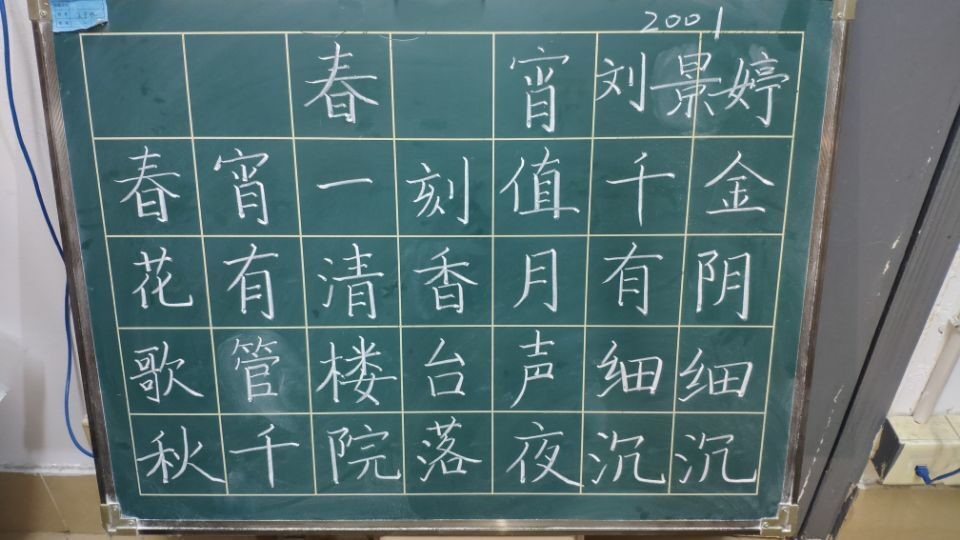 2001
春宵刘景婷
春宵一刻值千金
花有清香月有阴
歌管楼台声细细
秋千院落夜沉沉